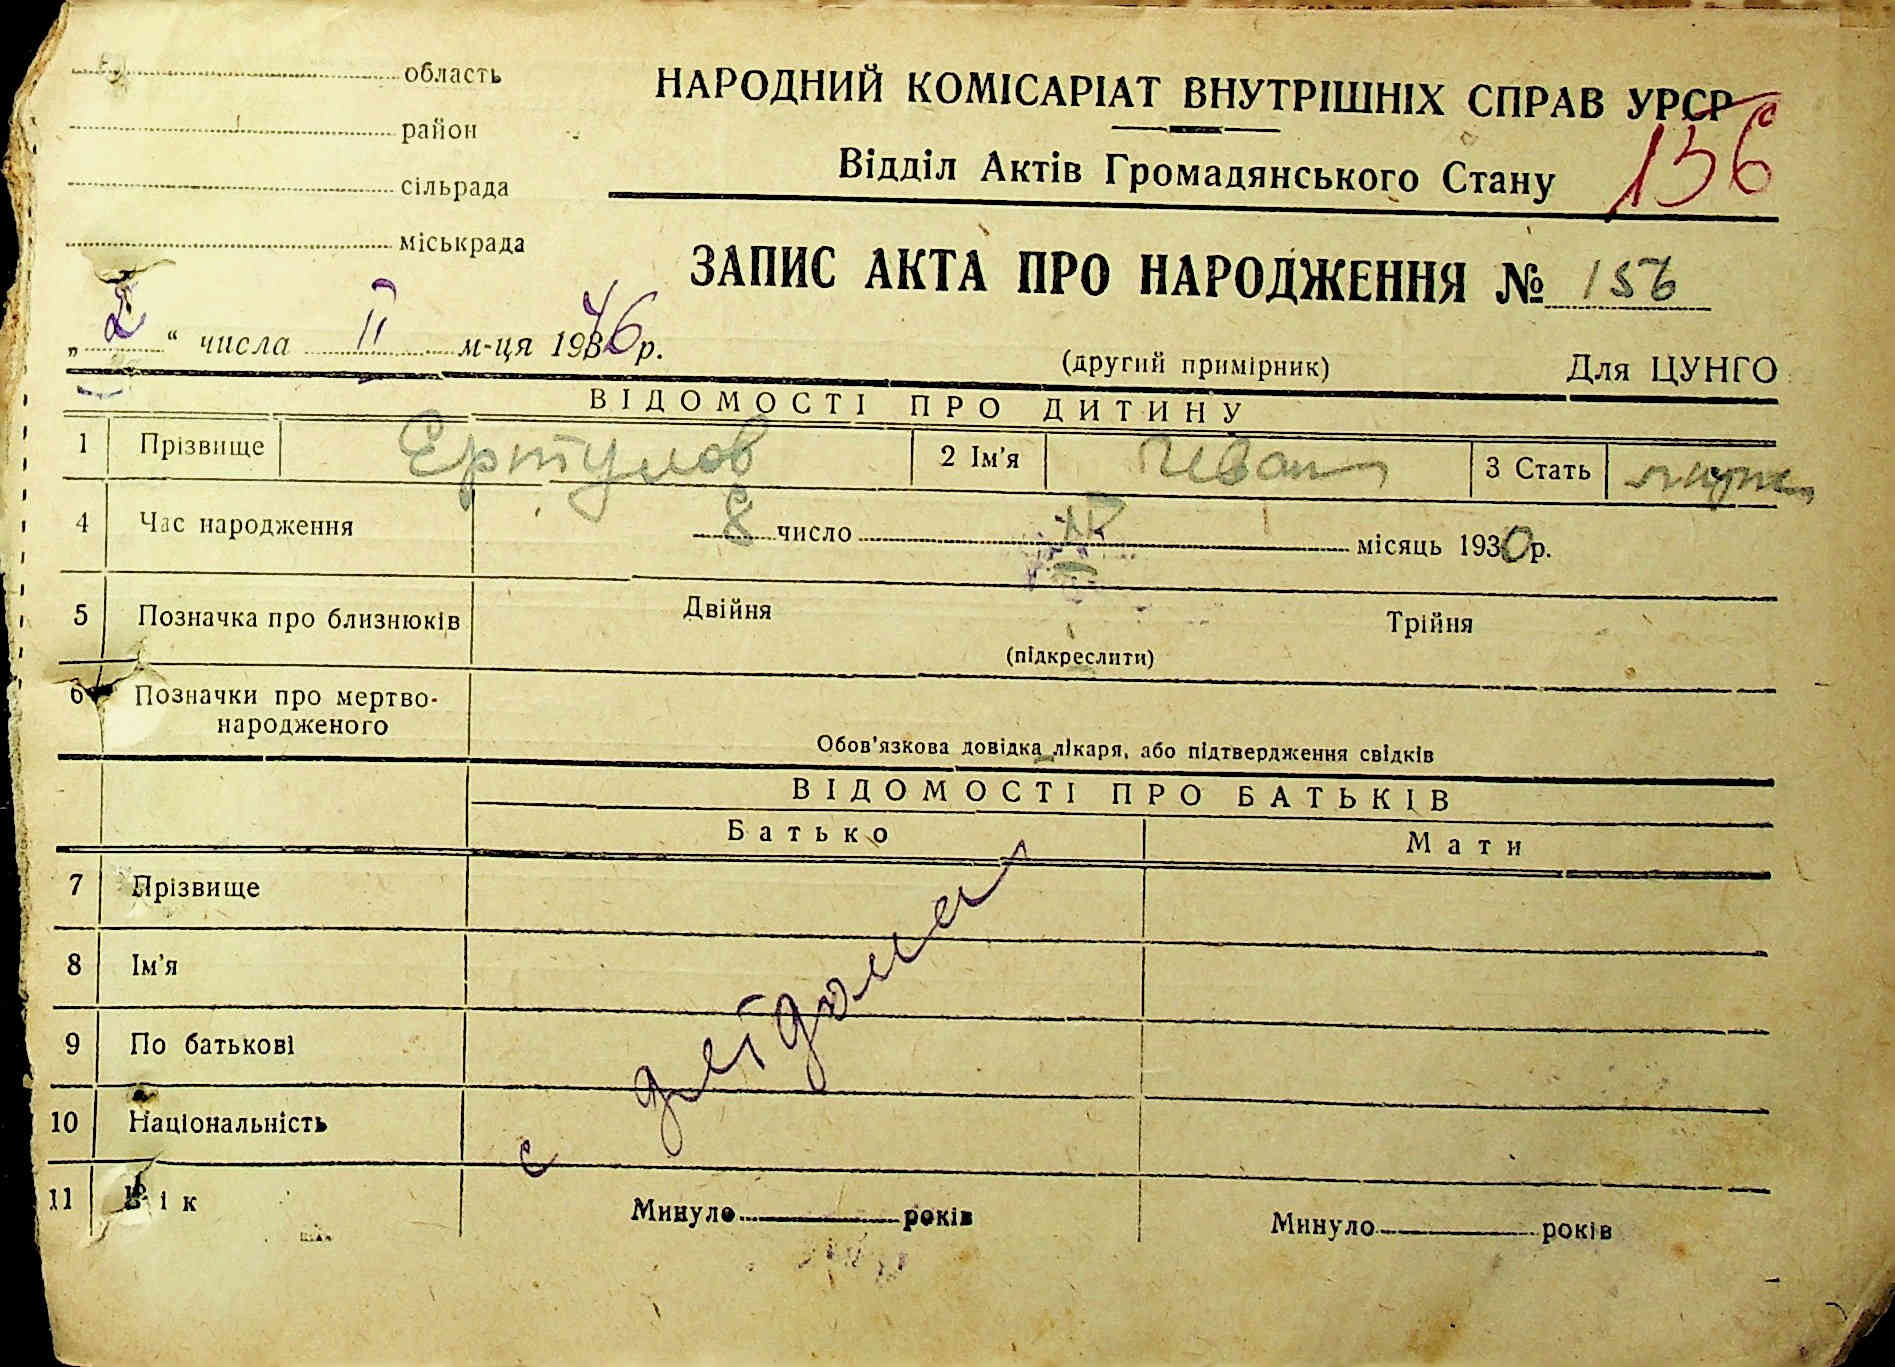 область
район
сільрада
міськрада
НАРОДНИЙ КОМІСАРІАТ ВНУТРІШНІХ СПРАВ УРСР
Відділ Актів Громадянського Стану
156
ЗАПИС АКТА ПРО НАРОДЖЕННЯ № 156
„2“ числа II м-ця 1946 р.
(другий примірник) Для ЦУНГО
ВІДОМОСТІ ПРО ДИТИНУ
1 Прізвище Ертулов 2 Ім'я Иван 3 Стать муж
4 Час народження 8 число місяць 1930 р.
5 Позначка про близнюків Двійня Трійня
(підкреслити)
6 Позначки про мертво-
народженого
Обов'язкова довідка лікаря, або підтвердження свідків
ВІДОМОСТІ ПРО БАТЬКІВ
Батько Мати
7 Прізвище
8 Ім'я
9 По батькові
10 Національність
с детдома
11 Вік Минуло років Минуло років